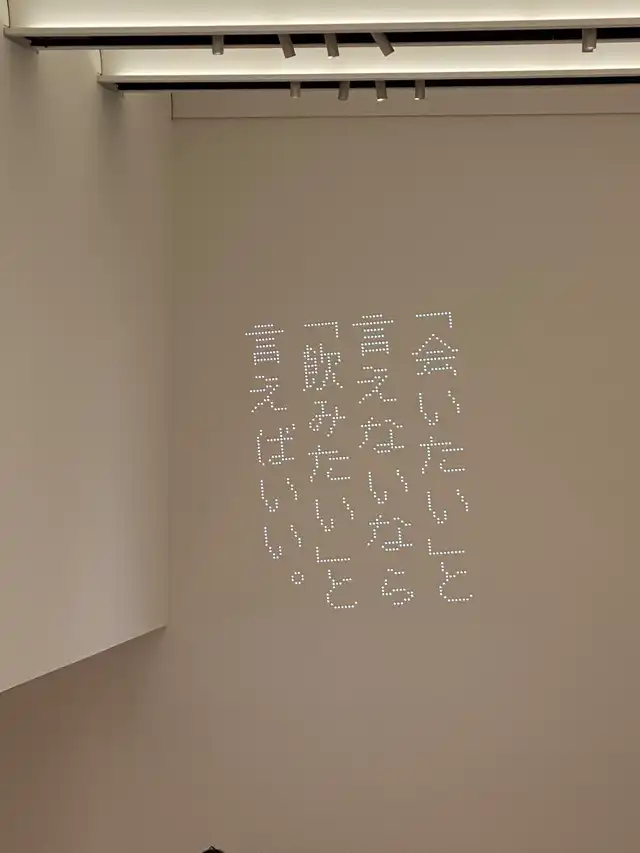 「会いたい」と
言えないなら
「飲みたい」と
言えばいい。